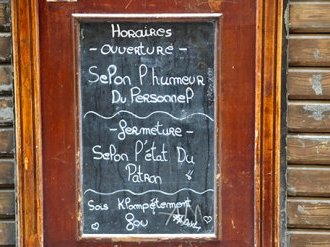 Horaires
- Ouverture -
Selon l'humeur
Du Personnel
- fermeture -
Selon l'état Du
Patron
Sois Komplètement
fou